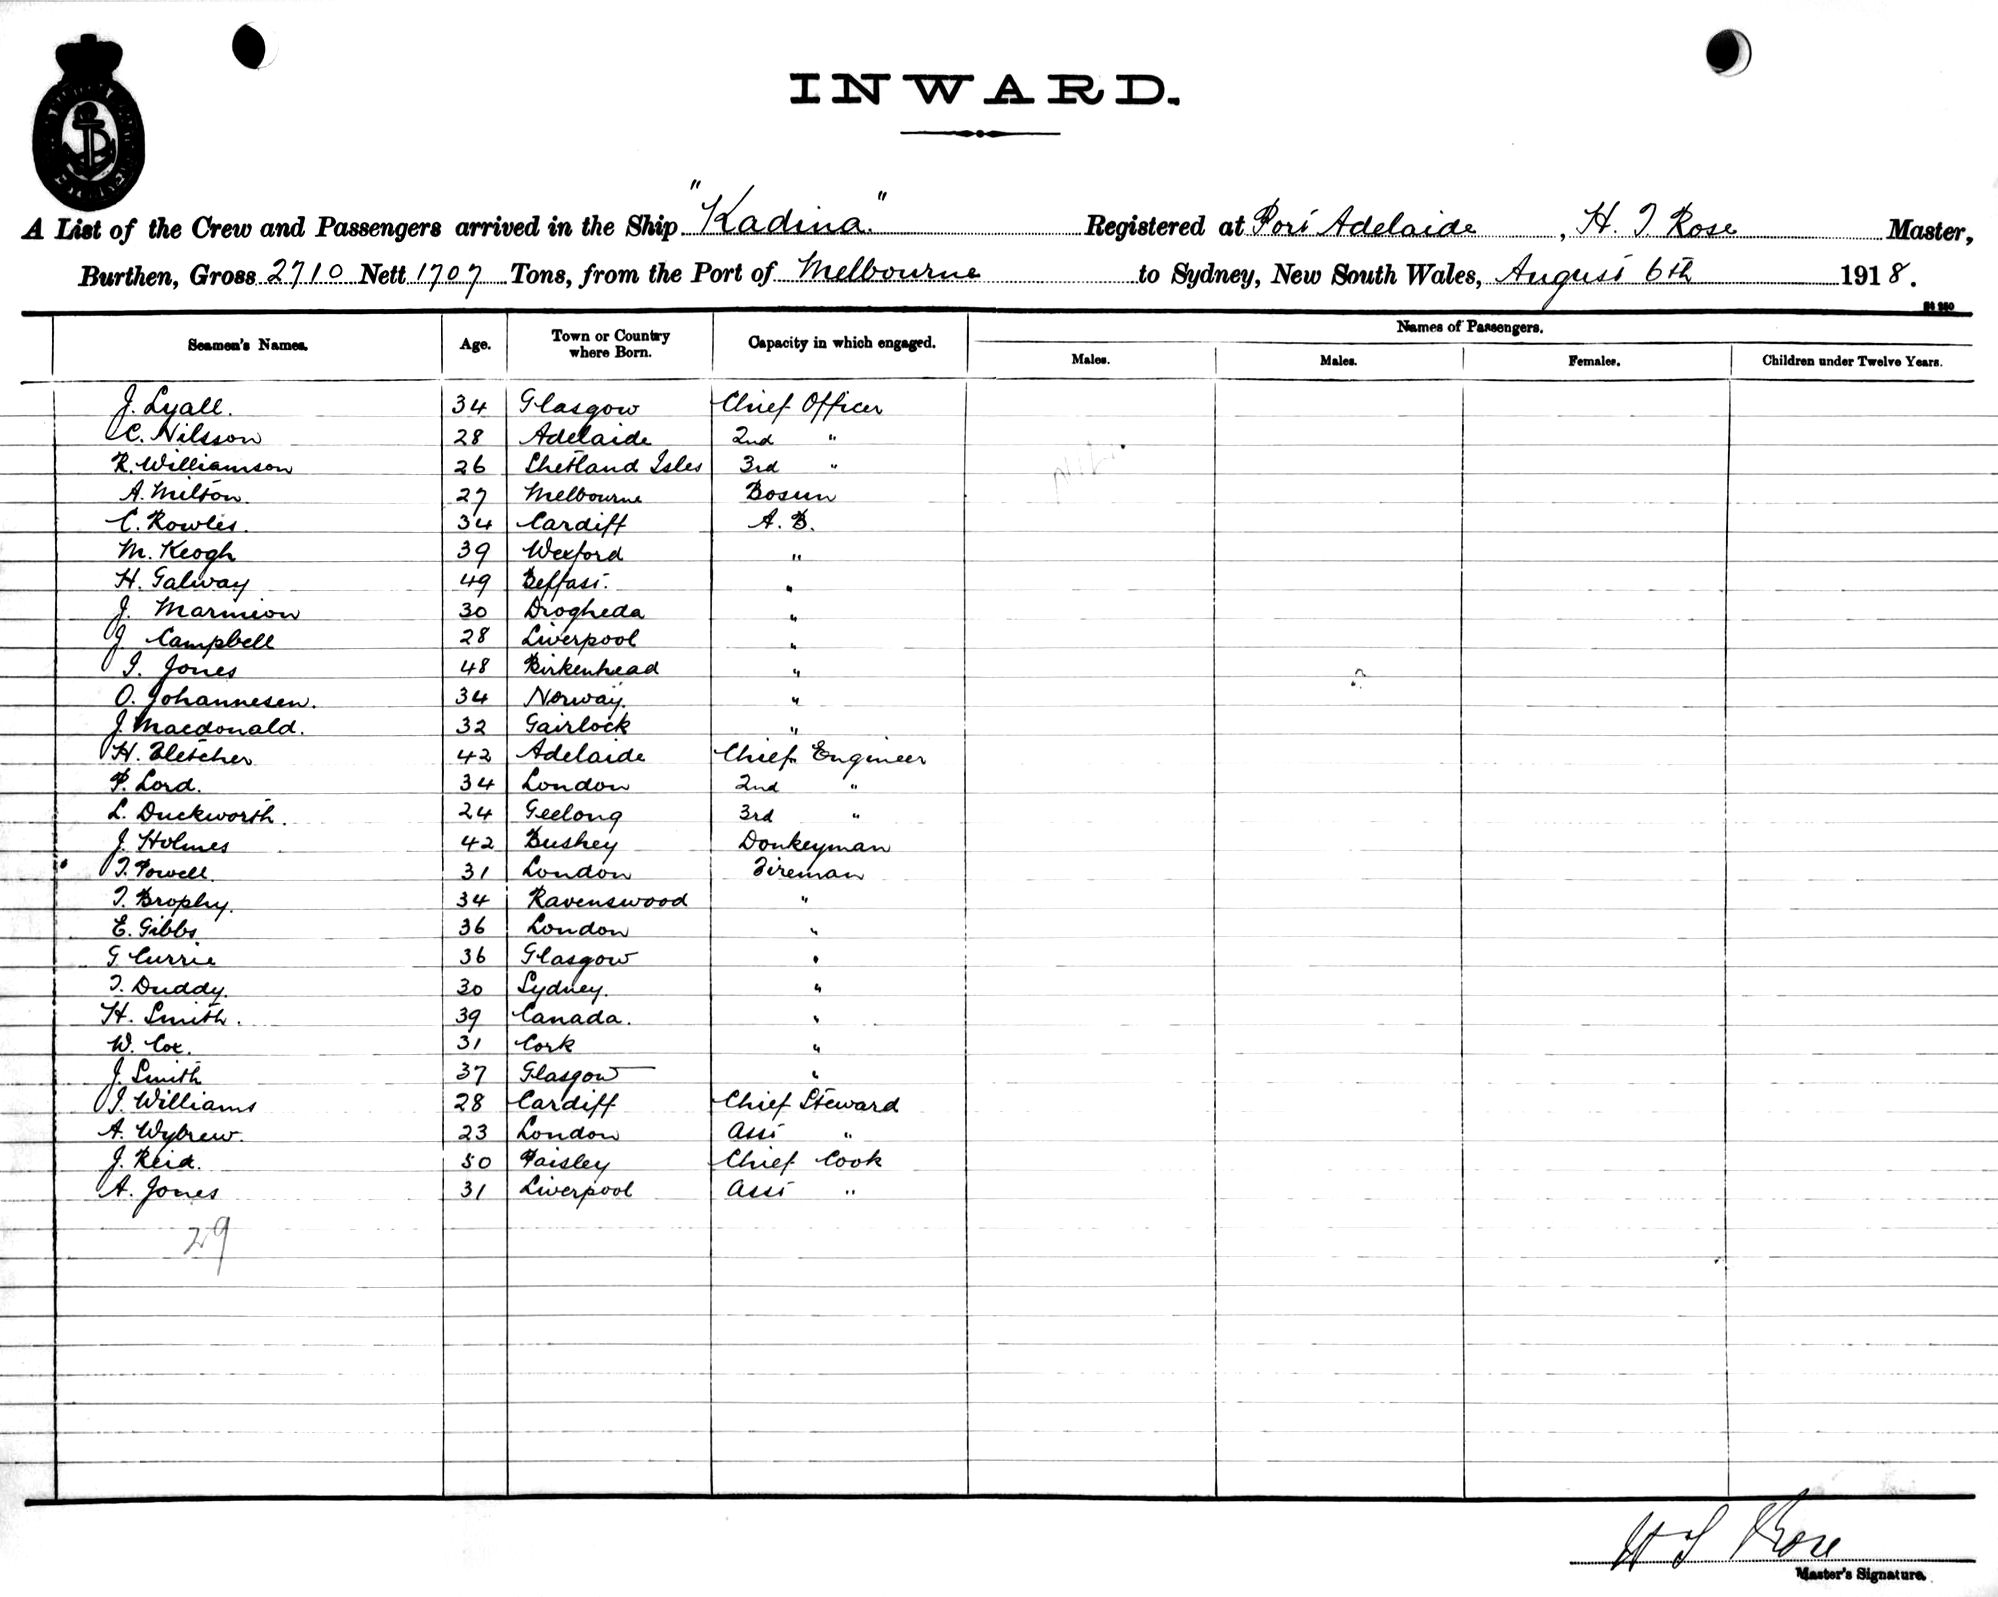 INWARD.
A List of the Crew and Passengers arrived in the Ship "Kadina" Registered at Port Adelaide, H. T Rose Master,
Burthen, Gross 2710 Nett 1707 Tons, from the Port of Melbourne to Sydney, New South Wales, August 6th 1918.
Seamen's Names. Age. Town or Country where Born. Capacity in which engaged. Names of Passengers.
Males. Males. Females. Children under Twelve Years.
J. Lyall. 34 Glasgow Chief Officer
C. Nilsson 28 Adelaide 2nd "
R. Williamson 26 Shetland Isles 3rd "
A. Milton. 27 Melbourne Bosun
C. Rowles. 34 Cardiff A. B.
M. Keogh 39 Wexford "
H. Galway 49 Belfast. "
J. Marmion 30 Drogheda "
J. Campbell 28 Liverpool "
T. Jones 48 Birkenhead "
O. Johannesen. 34 Norway. "
J. Macdonald. 32 Gairlock "
H. Fletcher 42 Adelaide Chief Engineer
P. Lord. 34 London 2nd "
L. Duckworth. 24 Geelong 3rd "
J. Holmes 42 Bushey Donkeyman
T. Powell. 31 London Fireman
T. Brophy. 34 Ravenswood "
E. Gibbs 36 London "
G Currie 36 Glasgow "
T. Duddy. 30 Sydney. "
H. Smith. 39 Canada. "
W. Cox. 31 Cork "
J. Smith 37 Glasgow "
T. Williams 28 Cardiff Chief Steward
A. Wybrew. 23 London Asst "
J. Reid. 50 Paisley Chief Cook
A. Jones 31 Liverpool Asst "
29
H T Rose
Master's Signature.